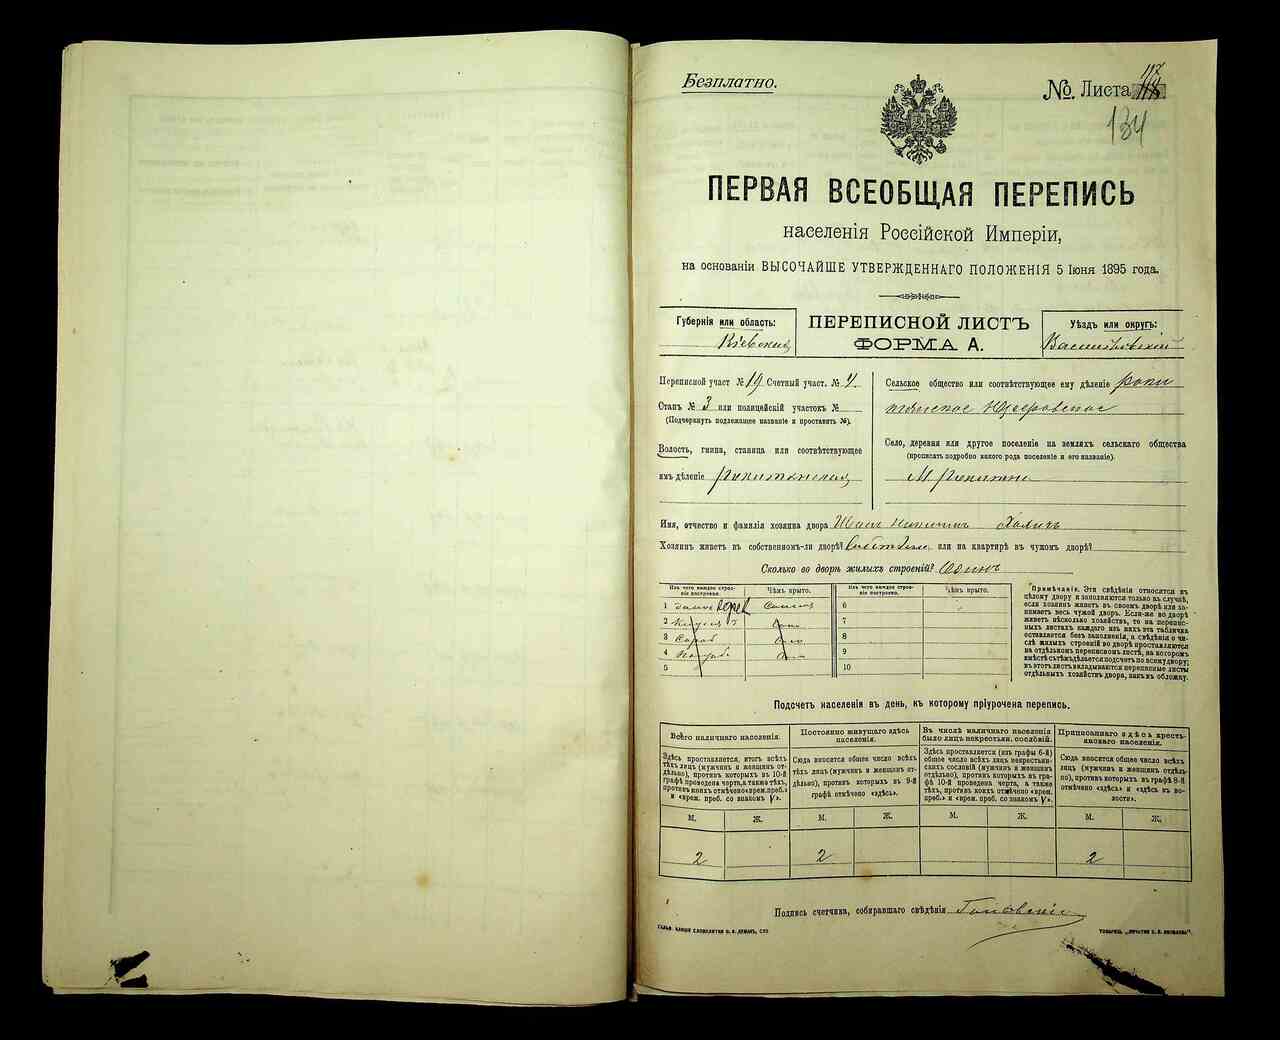 Безплатно.
№. Листа 117
134
ПЕРВАЯ ВСЕОБЩАЯ ПЕРЕПИСЬ
населенія Россійской Имперіи,
на основаніи ВЫСОЧАЙШЕ УТВЕРЖДЕННАГО ПОЛОЖЕНІЯ 5 Іюня 1895 года.
Губернія или область:
Кіевская
ПЕРЕПИСНОЙ ЛИСТЪ
ФОРМА А.
Уѣздъ или округъ:
Васильковскій
Переписной участ № 19 Счетный участ. № 4.
Станъ № 3 или полицейскій участокъ №
(Подчеркнуть подлежащее названіе и проставить №).
Волость, гмина, станица или соотвѣтствующее
имъ дѣленіе Рокитянская
Сельское общество или соотвѣтствующее ему дѣленіе Роки
тянское
Село, деревня или другое поселеніе на земляхъ сельскаго общества
(прописать подробно какого рода поселеніе и его названіе).
М. Рокитна
Имя, отчество и фамилія хозяина двора
Хозяинъ живетъ въ собственномъ-ли дворѣ? или на квартирѣ въ чужомъ дворѣ?
Сколько во дворѣ жилыхъ строеній? Одинъ
Изъ чего каждое строеніе построено.
Чѣмъ крыто.
Изъ чего каждое строеніе построено.
Чѣмъ крыто.
1 дерев Солом 6
2 7
3 8
4 9
5 10
Примѣчаніе. Эти свѣдѣнія относятся къ
цѣлому двору и заполняются только въ случаѣ,
если хозяинъ живетъ въ своемъ дворѣ или занимаетъ
весь чужой дворъ. Если-же во дворѣ
живетъ нѣсколько хозяйствъ, то на переписныхъ
листахъ каждаго изъ нихъ эта табличка
оставляется безъ заполненія, а свѣдѣнія о числѣ
жилыхъ строеній во дворѣ проставляются
на отдѣльномъ переписномъ листѣ, на которомъ
вмѣстѣ съ тѣмъ дѣлается подсчетъ по всему двору;
въ этотъ листъ вкладываются переписные листы
отдѣльныхъ хозяйствъ двора, какъ въ обложку.
Подсчетъ населенія въ день, къ которому пріурочена перепись.
Всего наличнаго населенія.
Здѣсь проставляется, итогъ всѣхъ
тѣхъ лицъ (мужчинъ и женщинъ отдѣльно),
противъ которыхъ въ 10-й
графѣ проведена черта, а также тѣхъ,
противъ коихъ отмѣчено «врем. преб.»
и «врем. преб. со знакомъ V».
Постоянно живущаго здѣсь
населенія.
Сюда вносится общее число всѣхъ
тѣхъ лицъ (мужчинъ и женщинъ отдѣльно),
противъ которыхъ въ 9-й
графѣ отмѣчено «здѣсь».
Въ числѣ наличнаго населенія
было лицъ некрестьян. сословій.
Здѣсь проставляется (изъ графы 6-й)
общее число всѣхъ лицъ некрестьянскихъ
сословій (мужчинъ и женщинъ
отдѣльно), противъ которыхъ въ графѣ
10-й проведена черта, а также
тѣхъ, противъ коихъ отмѣчено «врем.
преб.» и «врем. преб. со знакомъ V».
Приписаннаго здѣсь крестьянскаго
населенія.
Сюда вносится общее число всѣхъ
лицъ (мужчинъ и женщинъ отдѣльно),
противъ которыхъ въ графѣ 8-й
отмѣчено «здѣсь» и «здѣсь въ волости».
М. Ж. М. Ж. М. Ж. М. Ж.
2 2 2
Подпись счетчика, собиравшаго свѣдѣнія